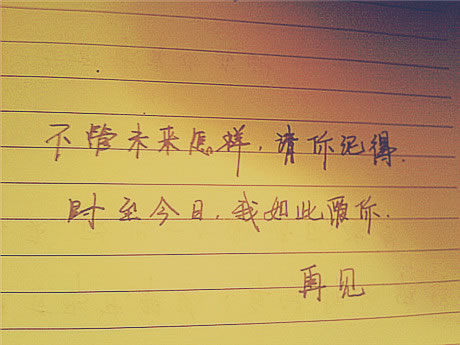 不管未来怎样,请你记得.
时至今日,我如此愛你.
再见